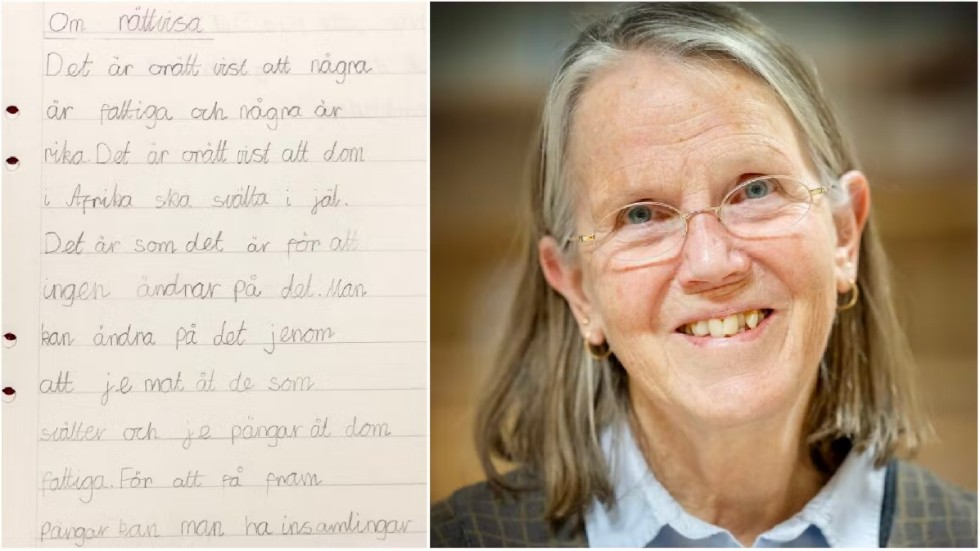 Om rättvisa
Det är orätt vist att några
är fattiga och några är
rika. Det är orätt vist att dom
i Afrika ska svälta i jäl.
Det är som det är för att
ingen ändrar på det. Man
kan ändra på det jenom
att je mat åt de som
svälter och je pängar åt dom
fattiga. För att få fram
pängar kan man ha insamlingar